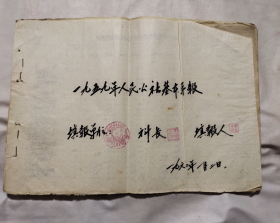 一九五九年人民公社基本年报
填报单位： 科长 填报人
一九六〇年 月 日